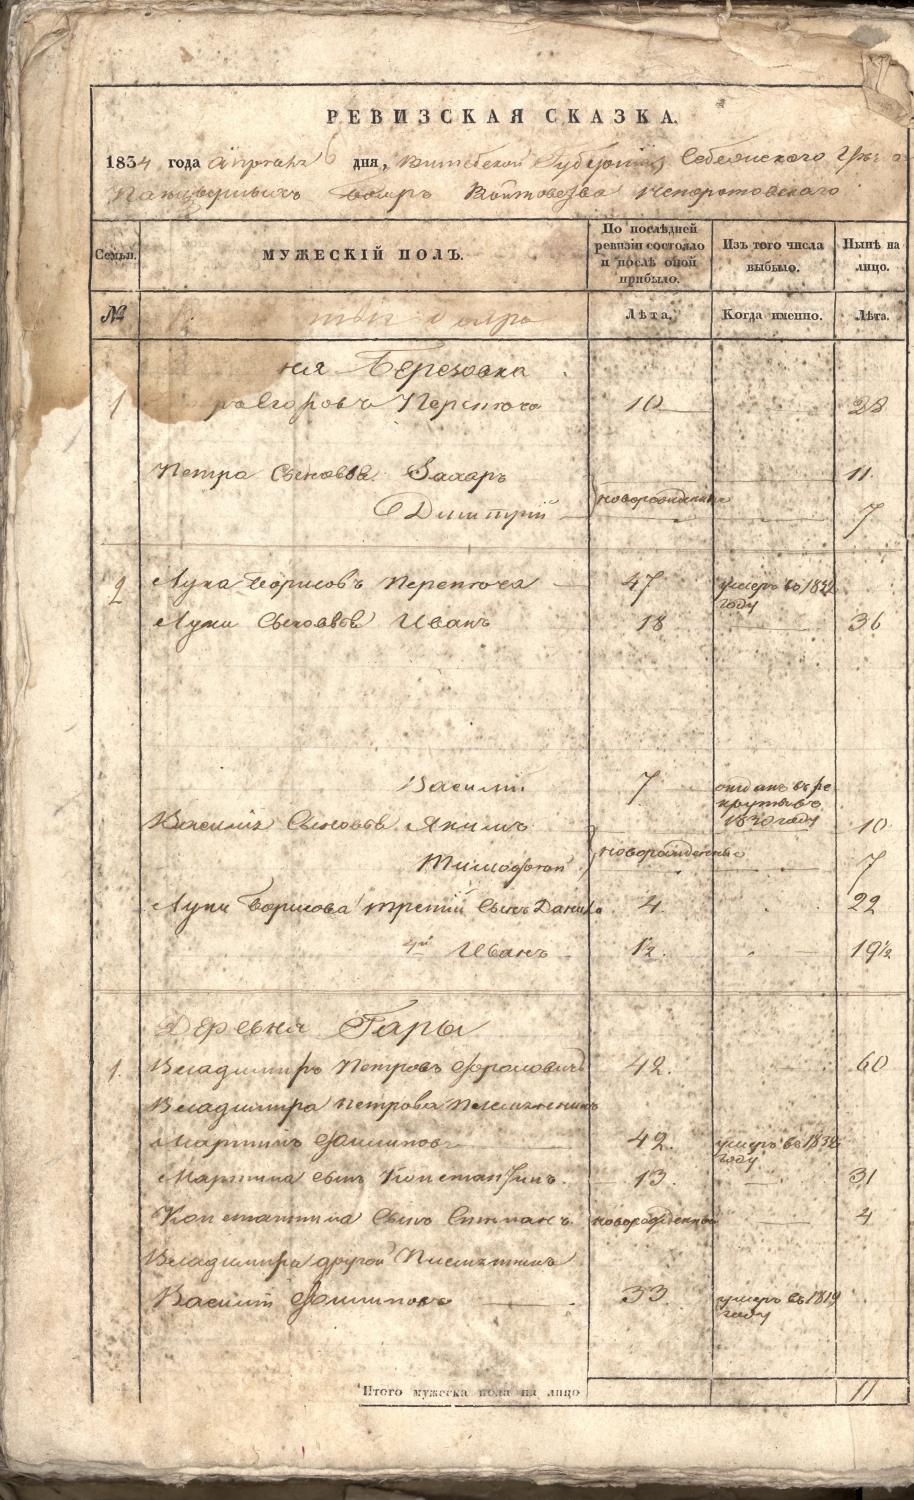 РЕВИЗСКАЯ СКАЗКА.
1834 года апреля 6 дня, Витебской Губернии, Себежского
бояр Войтовства Непоротовскаго
Семьи. МУЖЕСКІЙ ПОЛЪ. По послѣдней ревизіи состояло и послѣ оной прибыло. Изъ того числа выбыло. Нынѣ на лицо.
№ Лѣта. Когда именно. Лѣта.
ня Березовка
1 Егоровъ Перепеча 10 28
Петра Сыновья Захаръ новорожденные 11
Димитрій 7
2 Лука Борисовъ Перепеча 47 умеръ въ 1832 году
Луки Сыновья Иванъ 18 36
Василій 7 отданъ въ рекруты въ 1830 году
Василія Сыновья Якимъ новорожденные 10
Тимофей 7
Луки Борисова третій Сынъ Данила 4 22
4й Иванъ 1½ 19½
Деревня Гары
1. Владимиръ Петровъ 42. 60
Владимира Петрова Племянникъ
Мартинъ Филиповъ 42. умеръ въ 1832 году
Мартина сынъ Константинъ 13 31
Константина Сынъ Степанъ новорожденный 4
Владимира другой Племянникъ
Василій Филиповъ 33 умеръ въ 1819 году
Итого мужеска пола на лицо 11